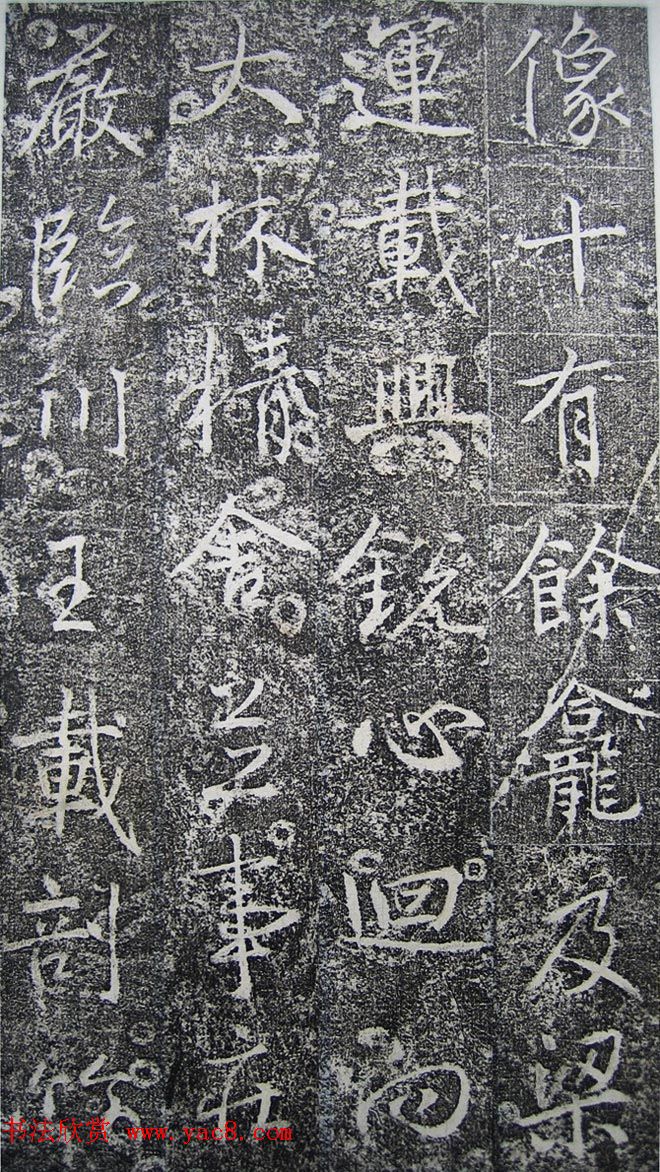 像十有餘龕及梁
運載興銳心迴向
大林精舍並事莊
嚴臨川王載剖竹
书法欣赏 www.yac8.com